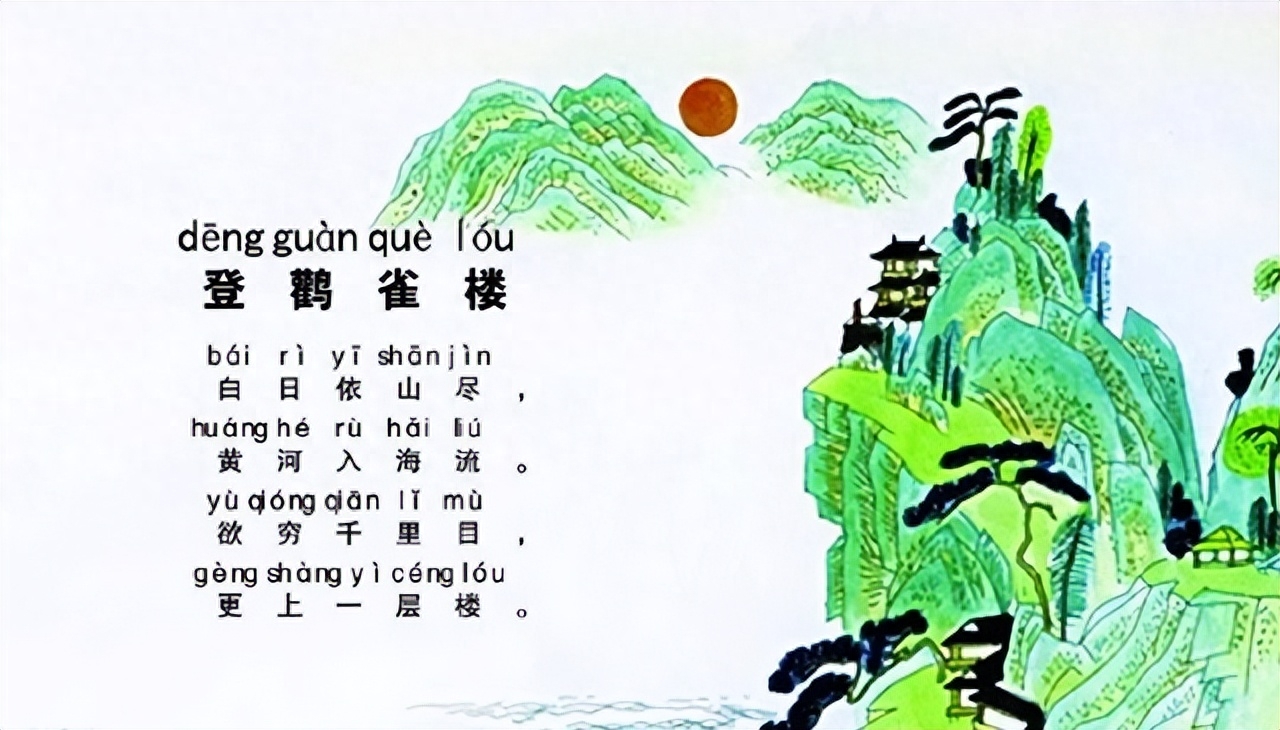 dēng guàn què lóu
登鹳雀楼
bái rì yī shān jìn
白日依山尽，
huáng hé rù hǎi liú
黄河入海流。
yù qióng qiān lǐ mù
欲穷千里目，
gèng shàng yì céng lóu
更上一层楼。